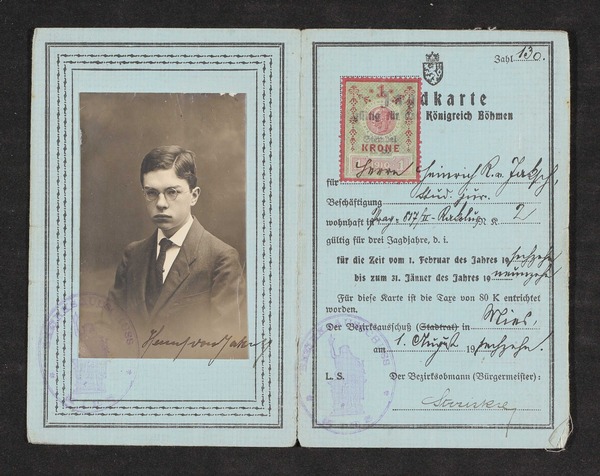 Zahl 130.
Jagdkarte
gültig für das Königreich Böhmen
1
KRONE
1910
1
für Herrn Heinrich R. v. Jaksch,
Beschäftigung stud. jur.
wohnhaft in Prag - 817/II N. K. 2
gültig für drei Jagdjahre, d. i.
für die Zeit vom 1. Februar des Jahres 19 sechzehn
bis zum 31. Jänner des Jahres 19 neunzehn
Für diese Karte ist die Taxe von 80 K entrichtet
worden.
Der Bezirksausschuß (Stadtrat) in Mies,
am 1. August 19 sechzehn.
L. S. Der Bezirksobmann (Bürgermeister):